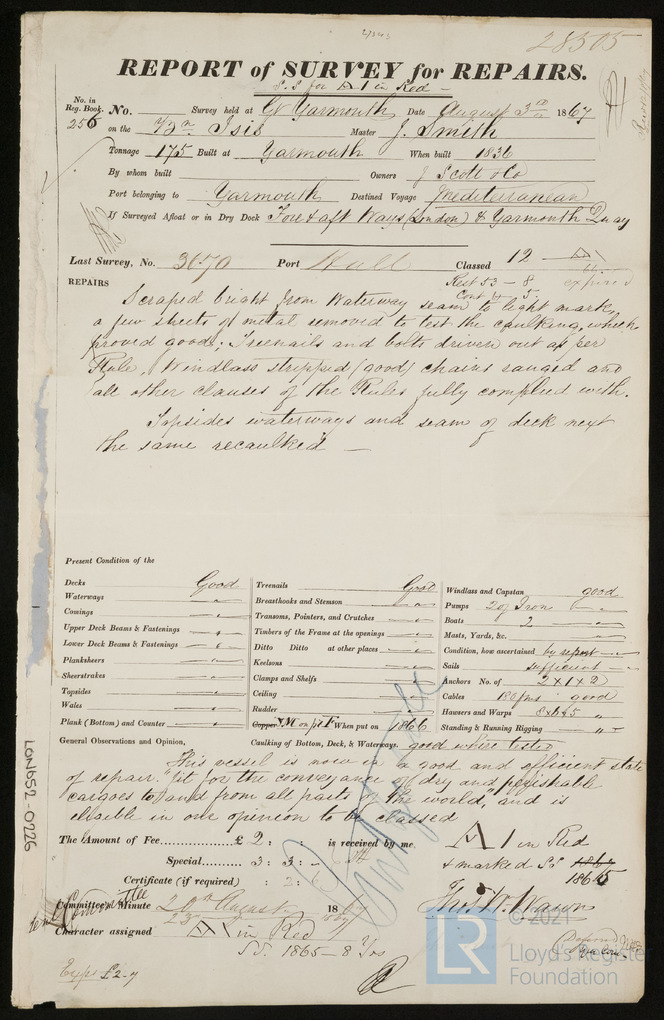 28505
REPORT of SURVEY for REPAIRS.
S.S for A1 in Red
No. in Reg. Book. No. Survey held at Gt Yarmouth Date August 3rd 1867
256 on the Isis Master J. Smith
Tonnage 175 Built at Yarmouth When built 1836
By whom built Owners J Scott & Co
Port belonging to Yarmouth Destined Voyage Mediteranean
If Surveyed Afloat or in Dry Dock Fore & aft Ways (London) & Yarmouth Quay
Last Survey, No. 3070 Port Hull Classed 12 A1
expired
Rest 53 - 8
Cont 5
REPAIRS
Scraped bright from Waterway seam to light mark,
a few sheets of metal removed to test the caulking, which
proved good; Treenails and bolts driven out as per
Rule, Windlass stripped (good) chains ranged and
all other clauses of the Rules fully complied with.
Topsides waterways and seam of deck next
the same recaulked —
Present Condition of the
Decks Good
Waterways "
Comings "
Upper Deck Beams & Fastenings "
Lower Deck Beams & Fastenings "
Planksheers "
Sheerstrakes "
Topsides "
Wales "
Plank (Bottom) and Counter "
Treenails Good
Breasthooks and Stemson "
Transoms, Pointers, and Crutches "
Timbers of the Frame at the openings "
Ditto Ditto at other places "
Keelsons "
Clamps and Shelfs "
Ceiling "
Rudder "
Copper Y.M on felt When put on 1866
Caulking of Bottom, Deck, & Waterways. good where tested
Windlass and Capstan good
Pumps 2 of Iron "
Boats 2 "
Masts, Yards, &c. "
Condition, how ascertained by report
Sails sufficient
Anchors No. of 2 x 1 x 2
Cables 180 fms good
Hawsers and Warps 8 x 6 x 5 "
Standing & Running Rigging "
General Observations and Opinion,
This vessel is now in a good and efficient state
of repair, "fit for the conveyance of dry and perishable
cargoes to and from all parts of the world," and is
eligible in our opinion to be classed
A1 in Red
& marked SS 1867
1865
The Amount of Fee £ 2 : : is received by me,
Special 3 : 3 : -
Certificate (if required) : 2 : 6
Thos. W. Wawn
Committee's Minute 20th August 1867
23
Character assigned A1 in Red
SS. 1865 - 8 Yrs
Exps £2-7
LON652-0226
© 2021
LR
Lloyd's Register
Foundation